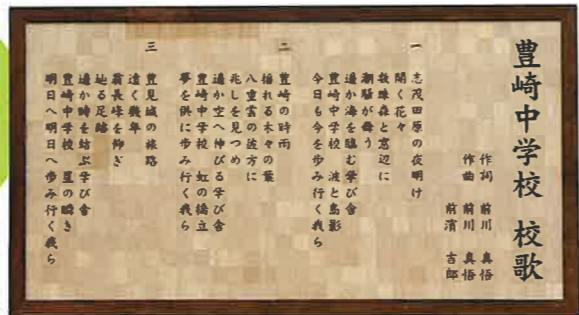 豊崎中学校 校歌
作詞 前川 真悟
作曲 前川 真悟
前濱 吉郎
一
志茂田原の夜明け
開く花々
教珠森と窓辺に
潮騒が舞う
遥か海を臨む学び舎
豊崎中学校 波と鳥影
今日も今を歩み行く我ら
二
豊崎の時雨
揺れる木々の葉
八重雲の彼方に
兆しを見つめ
遥か空へ伸びる学び舎
豊崎中学校 虹の橋立
夢を供に歩み行く我ら
三
豊見城の旅路
遠く幾年
翁長峰を仰ぎ
辿る足跡
遥か時を結ぶ学び舎
豊崎中学校 星の瞬き
明日へ明日へ歩み行く我ら